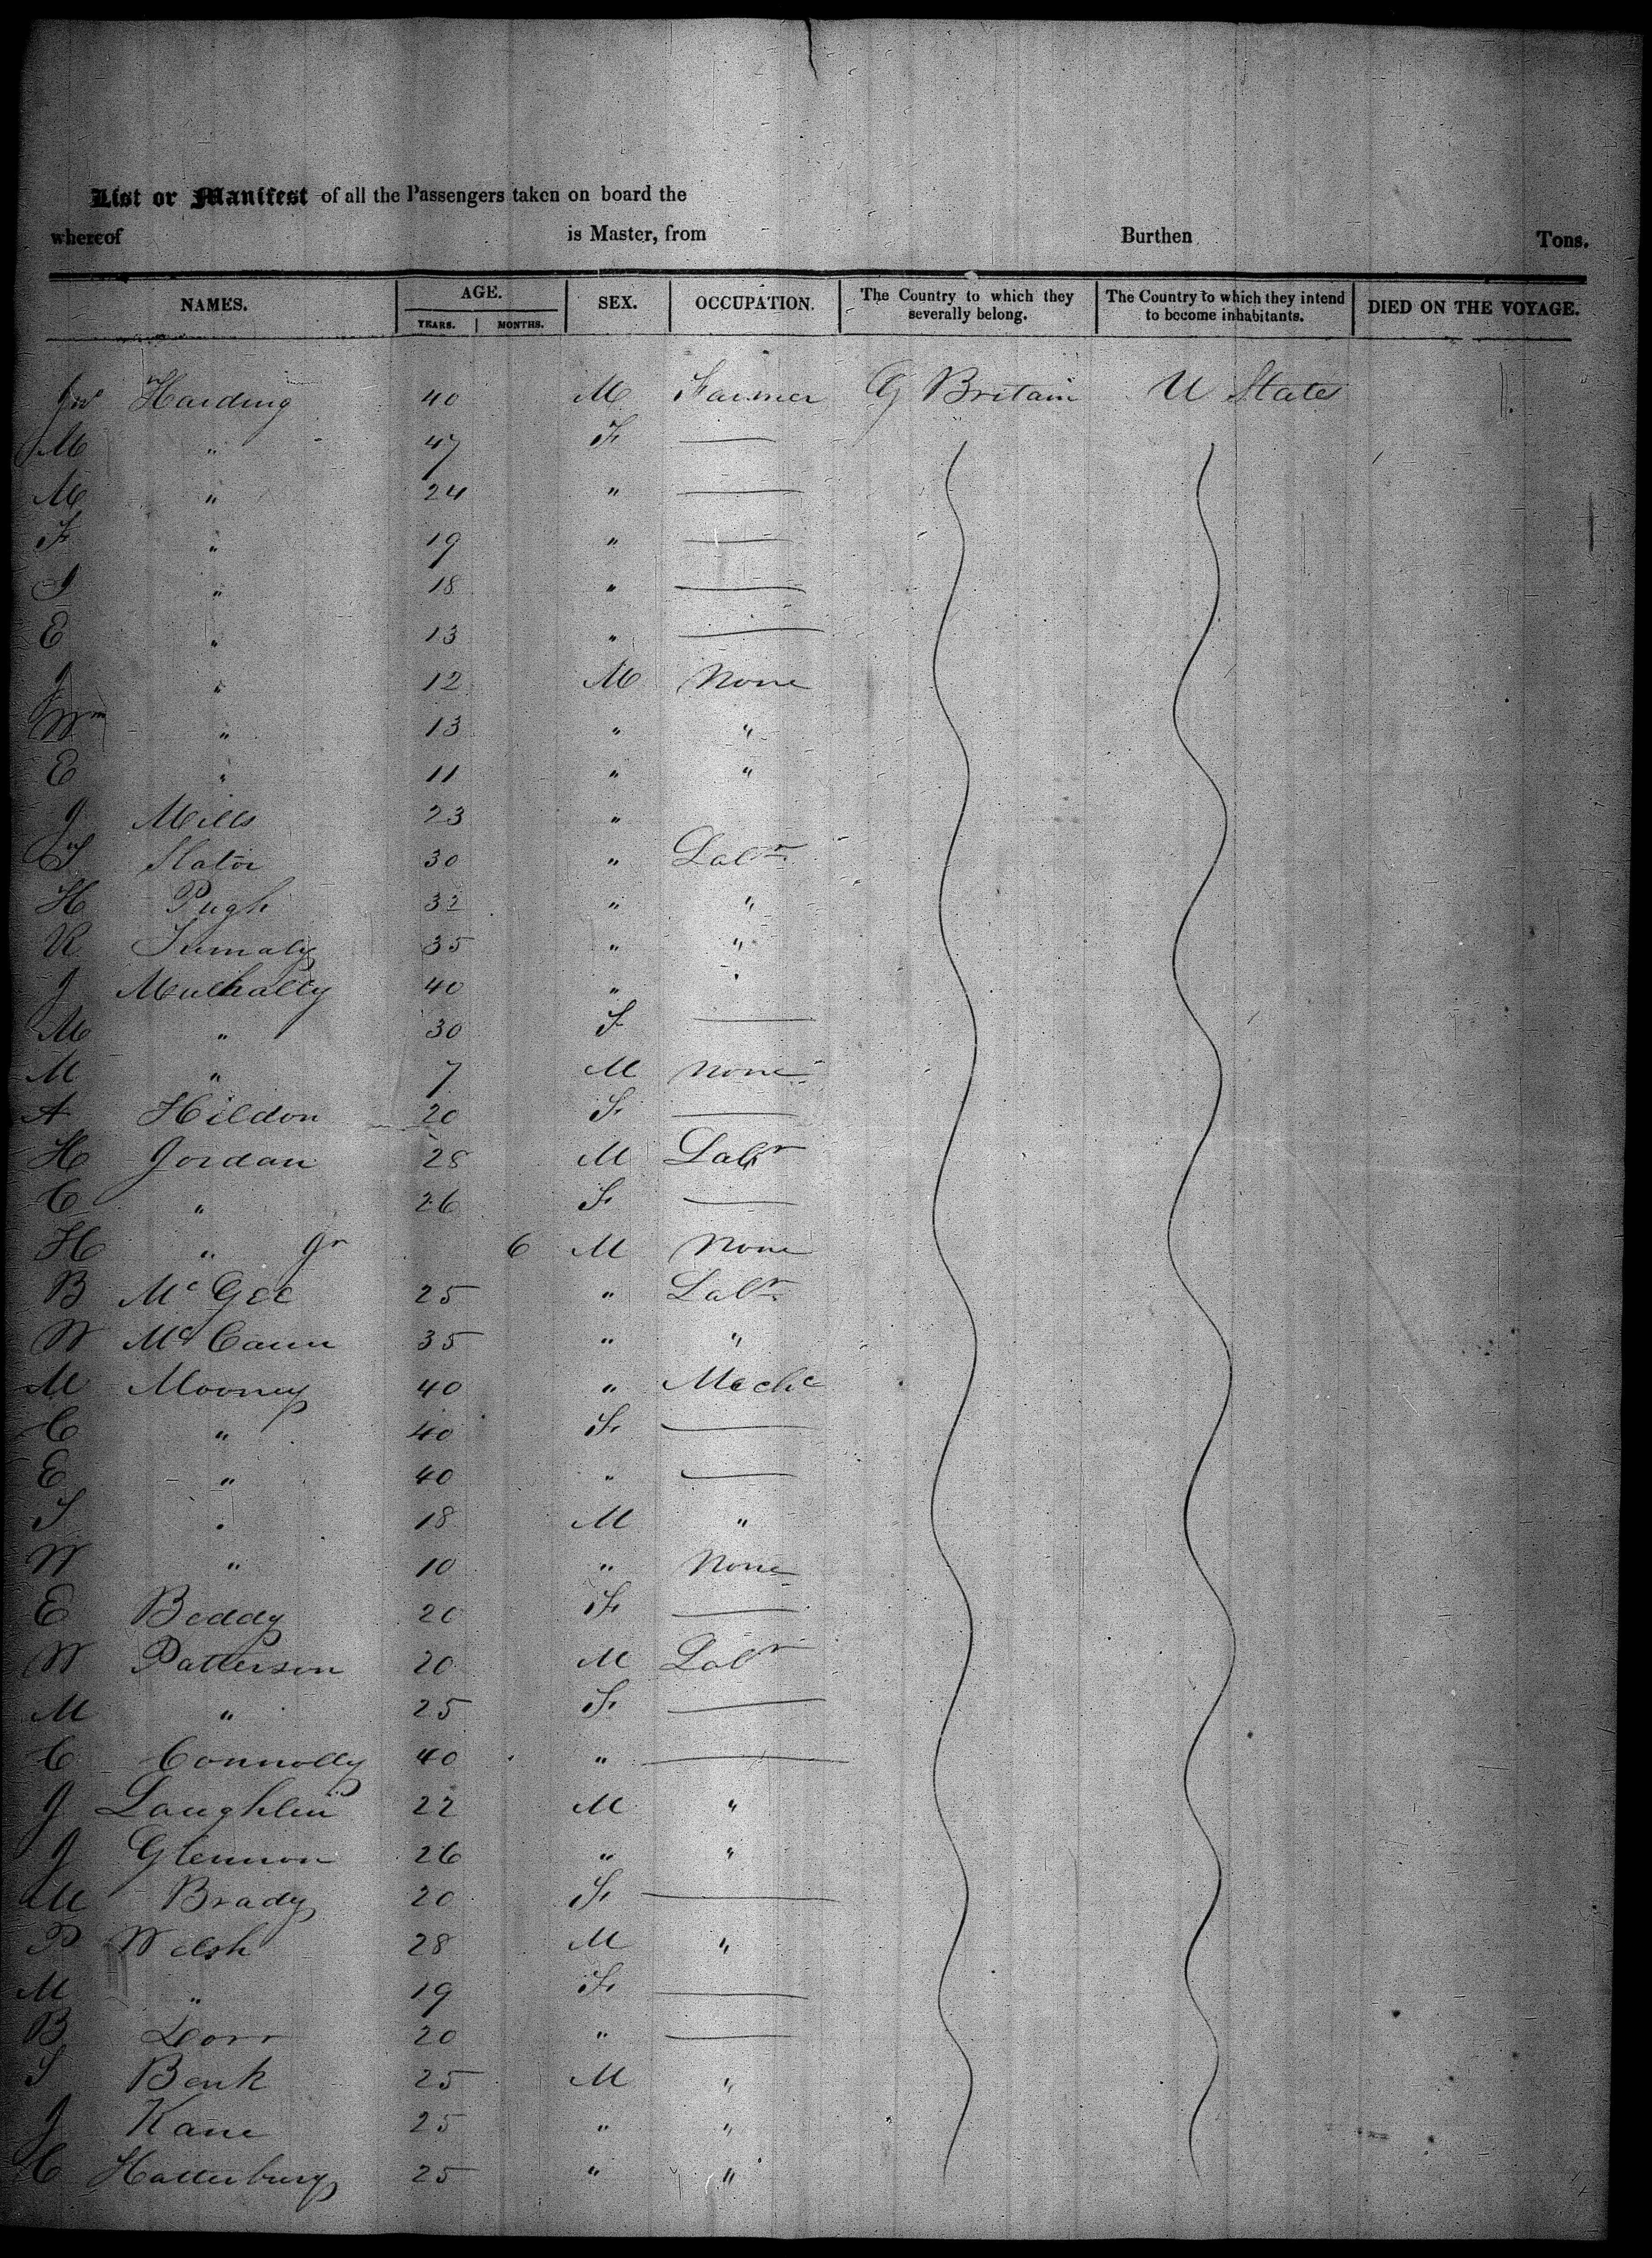 List or Manifest of all the Passengers taken on board the
whereof is Master, from Burthen Tons.
NAMES. AGE. SEX. OCCUPATION. The Country to which they severally belong. The Country to which they intend to become inhabitants. DIED ON THE VOYAGE.
YEARS. MONTHS.
Jno Harding 40 M Farmer G Britain U States
M " 47 F —
M " 24 " —
F " 19 " —
J " 18 " —
E " 13 " —
J " 12 M None
Wm " 13 " "
E " 11 " "
J Mills 23 "
S Slator 30 " Labr
H Pugh 32 " "
R 35 " "
J Mulhally 40 " "
M " 30 F —
M " 7 M None
A Hildon 20 F —
H Jordan 28 M Labr
C " 26 F —
H " Jr 6 M None
B McGee 25 " Labr
W McCann 35 " "
M Mooney 40 " Mechc
C " 40 F —
E " 40 " —
S " 18 M "
W " 10 " None
E Beddy 20 F —
W Patterson 20 M Labr
M " 25 F —
C Connolly 40 " —
J Laughlin 22 M "
J Glennon 26 " "
M Brady 20 F —
P Welsh 28 M "
M " 19 F —
B Dorr 20 " —
S Benk 25 M "
J Kane 25 " "
C Hatterbury 25 " "